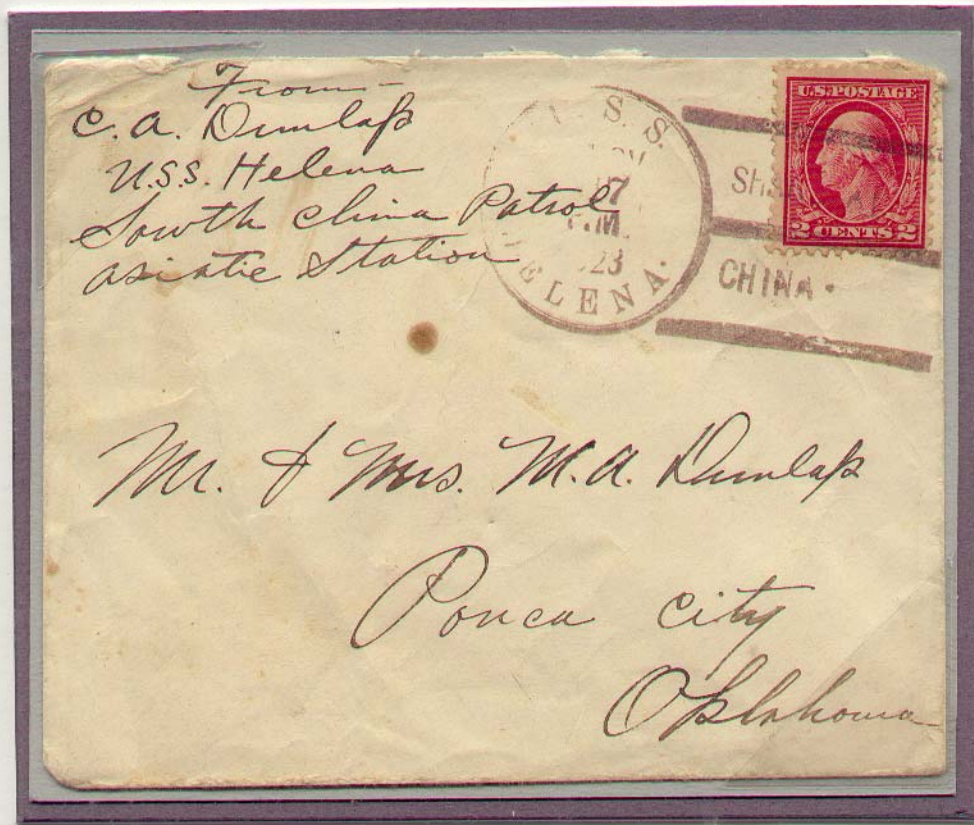 From -
C. A. Dunlap
U.S.S. Helena
South China Patrol
Asiatic Station
S. S.
7
23
HELENA.
CHINA.
U.S. POSTAGE
2 CENTS 2
Mr. & Mrs. M. A. Dunlap
Ponca City
Oklahoma